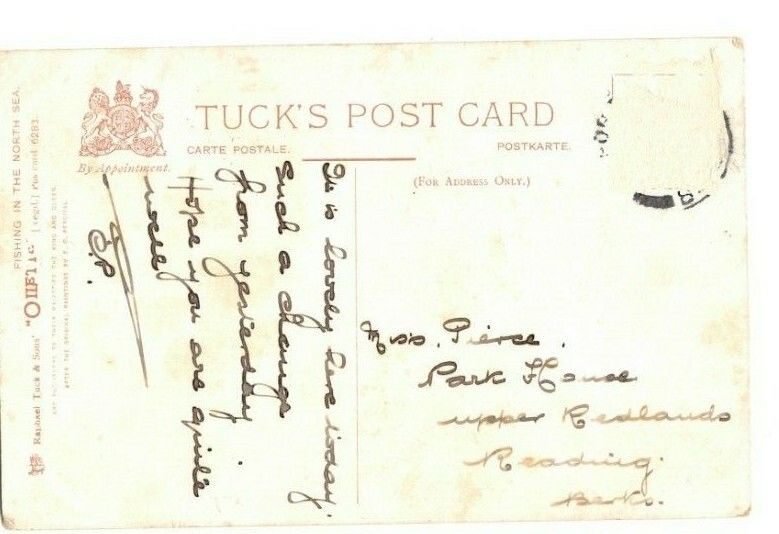 TUCK'S POST CARD
CARTE POSTALE.
POSTKARTE.
By Appointment.
(FOR ADDRESS ONLY.)
It is lovely here today.
Such a change
from yesterday.
Hope you are quite
well
C.P.
Miss. Pierce.
Park House
upper Redlands
Reading.
Berks.
FISHING IN THE NORTH SEA.
Raphael Tuck & Sons' "OILETTE" [Regd.] Postcard 6293.
ART PUBLISHERS TO THEIR MAJESTIES THE KING AND QUEEN.